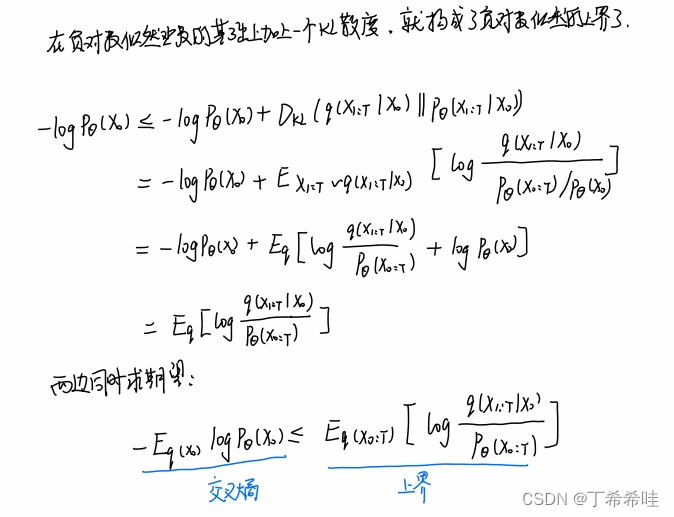 在负对数似然函数的基础上加上一个KL散度,就构成了负对数似然的上界了.
-log Pθ(X₀) ≤ -log Pθ(X₀) + D_KL(q(X₁:T|X₀) || Pθ(X₁:T|X₀))
= -log Pθ(X₀) + E_{X₁:T ~ q(X₁:T|X₀)} [log q(X₁:T|X₀) / (Pθ(X₀:T)/Pθ(X₀))]
= -log Pθ(X₀) + Eq [log q(X₁:T|X₀) / Pθ(X₀:T) + log Pθ(X₀)]
= Eq [log q(X₁:T|X₀) / Pθ(X₀:T)]
两边同时求期望:
-E_{q(X₀)} log Pθ(X₀) ≤ E_{q(X₀:T)} [log q(X₁:T|X₀) / Pθ(X₀:T)]
交叉熵 上界
CSDN @丁希希哇